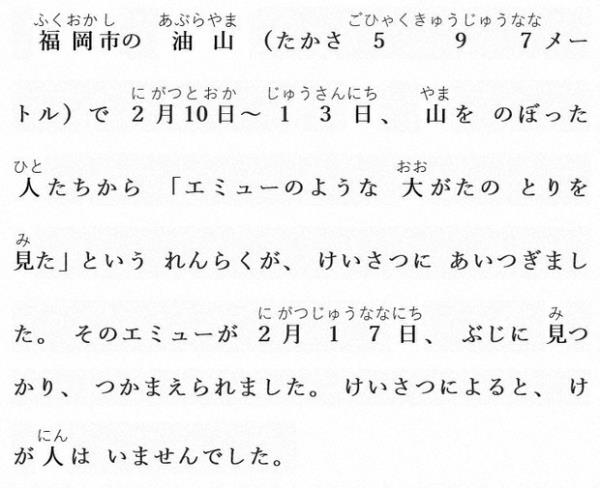 ふくおかし あぶらやま ごひゃくきゅうじゅうなな
福岡市の 油山 （たかさ 5 9 7メー
にがつとおか じゅうさんにち やま
トル）で 2月10日～ 1 3日、 山を のぼった
ひと おお
人たちから 「エミューのような 大がたの とりを
み
見た」という れんらくが、 けいさつに あいつぎまし
にがつじゅうななにち み
た。 そのエミューが 2月 1 7日、 ぶじに 見つ
かり、 つかまえられました。 けいさつによると、 け
にん
が人は いませんでした。